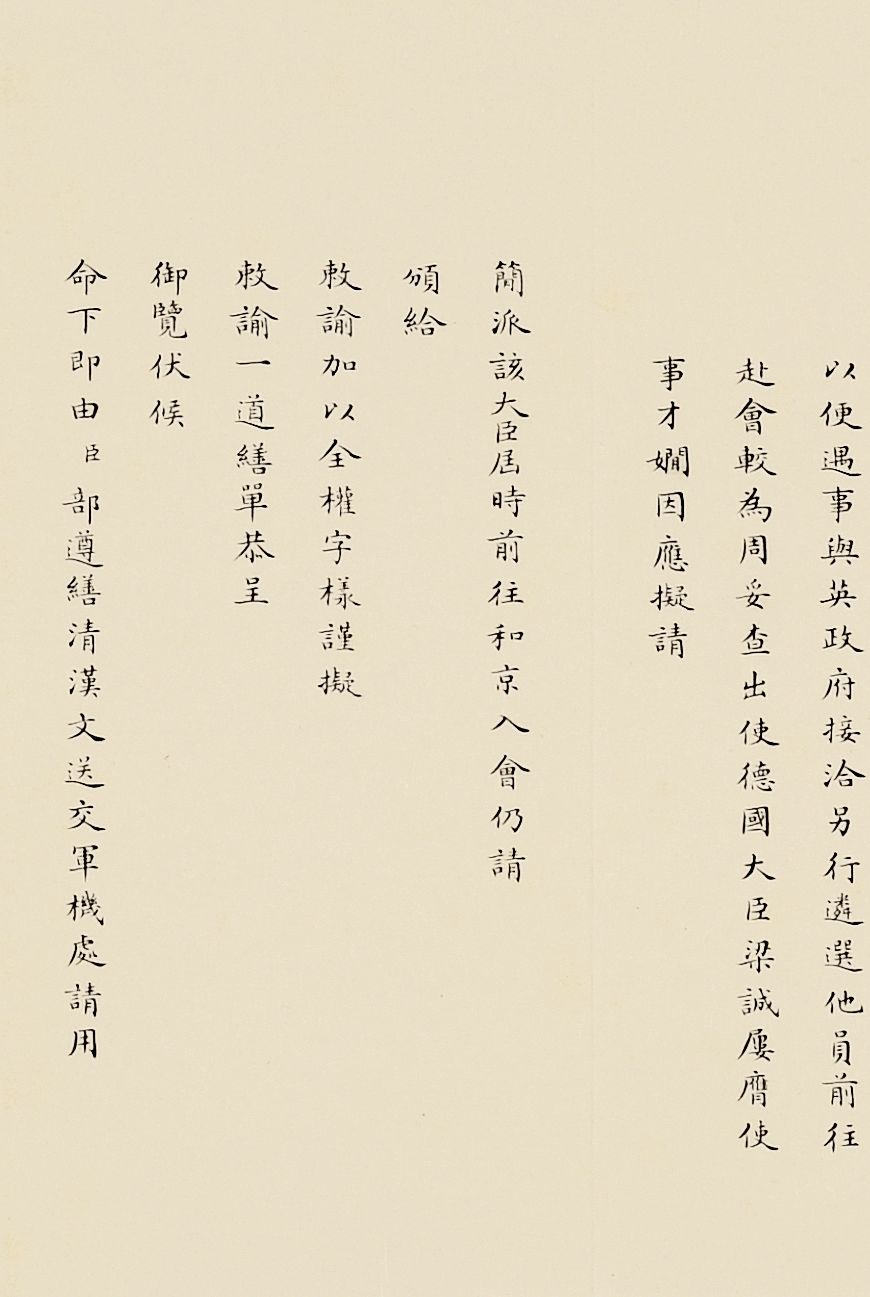 以便遇事與英政府接洽另行遴選他員前往
赴會較為周妥查出使德國大臣梁誠屢膺使
事才嫺因應擬請
簡派該大臣屆時前往和京入會仍請
頒給
敕諭加以全權字樣謹擬
敕諭一道繕單恭呈
御覽伏候
命下即由臣部遵繕清漢文送交軍機處請用